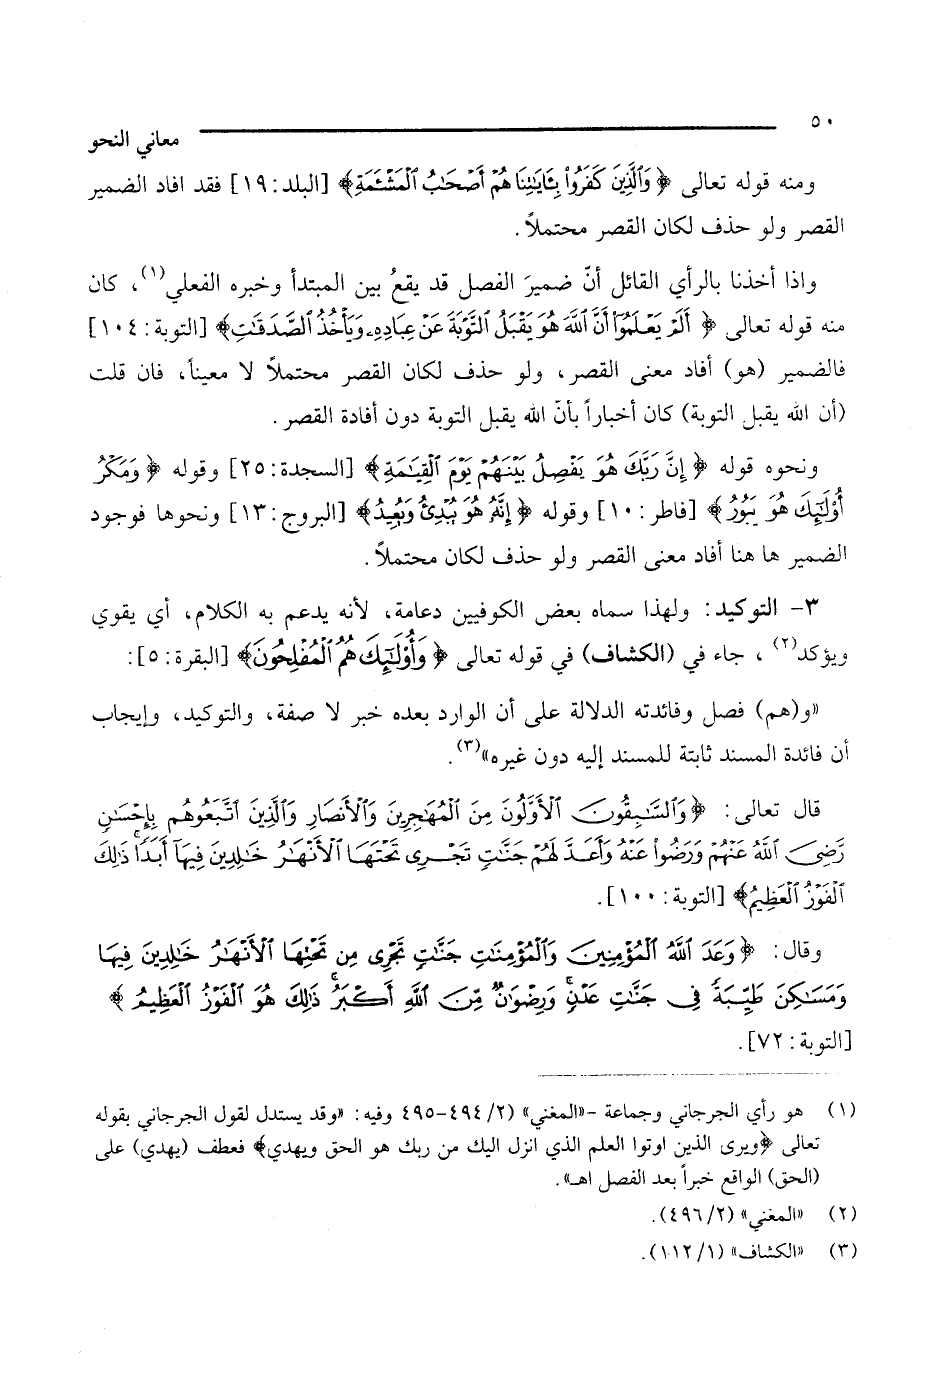 ٥٠
معاني النحو
ومنه قوله تعالى ﴿وَٱلَّذِينَ كَفَرُوا۟ بِـَٔايَـٰتِنَا هُمْ أَصْحَـٰبُ ٱلْمَشْـَٔمَةِ﴾ [البلد: ١٩] فقد افاد الضمير
القصر ولو حذف لكان القصر محتملاً.
واذا أخذنا بالرأي القائل أنّ ضميرَ الفصل قد يقعُ بين المبتدأ وخبره الفعلي(١)، كان
منه قوله تعالى ﴿أَلَمْ يَعْلَمُوٓا۟ أَنَّ ٱللَّهَ هُوَ يَقْبَلُ ٱلتَّوْبَةَ عَنْ عِبَادِهِۦ وَيَأْخُذُ ٱلصَّدَقَـٰتِ﴾ [التوبة: ١٠٤]
فالضمير (هو) أفاد معنى القصر، ولو حذف لكان القصر محتملاً لا معيناً، فان قلت
(أن الله يقبل التوبة) كان أخباراً بأنّ الله يقبل التوبة دون أفادة القصر.
ونحوه قوله ﴿إِنَّ رَبَّكَ هُوَ يَفْصِلُ بَيْنَهُمْ يَوْمَ ٱلْقِيَـٰمَةِ﴾ [السجدة: ٢٥] وقوله ﴿وَمَكْرُ
أُو۟لَـٰٓئِكَ هُوَ يَبُورُ﴾ [فاطر: ١٠] وقوله ﴿إِنَّهُۥ هُوَ يُبْدِئُ وَيُعِيدُ﴾ [البروج: ١٣] ونحوها فوجود
الضمير ها هنا أفاد معنى القصر ولو حذف لكان محتملاً.
٣- التوكيد: ولهذا سماه بعض الكوفيين دعامة، لأنه يدعم به الكلام، أي يقوي
ويؤكد(٢)، جاء في (الكشاف) في قوله تعالى ﴿وَأُو۟لَـٰٓئِكَ هُمُ ٱلْمُفْلِحُونَ﴾ [البقرة: ٥]:
«و(هم) فصل وفائدته الدلالة على أن الوارد بعده خبر لا صفة، والتوكيد، وإيجاب
أن فائدة المسند ثابتة للمسند إليه دون غيره»(٣).
قال تعالى: ﴿وَٱلسَّـٰبِقُونَ ٱلْأَوَّلُونَ مِنَ ٱلْمُهَـٰجِرِينَ وَٱلْأَنصَارِ وَٱلَّذِينَ ٱتَّبَعُوهُم بِإِحْسَـٰنٍ
رَّضِىَ ٱللَّهُ عَنْهُمْ وَرَضُوا۟ عَنْهُ وَأَعَدَّ لَهُمْ جَنَّـٰتٍ تَجْرِى تَحْتَهَا ٱلْأَنْهَـٰرُ خَـٰلِدِينَ فِيهَآ أَبَدًا ۚ ذَٰلِكَ
ٱلْفَوْزُ ٱلْعَظِيمُ﴾ [التوبة: ١٠٠].
وقال: ﴿وَعَدَ ٱللَّهُ ٱلْمُؤْمِنِينَ وَٱلْمُؤْمِنَـٰتِ جَنَّـٰتٍ تَجْرِى مِن تَحْتِهَا ٱلْأَنْهَـٰرُ خَـٰلِدِينَ فِيهَا
وَمَسَـٰكِنَ طَيِّبَةً فِى جَنَّـٰتِ عَدْنٍ ۚ وَرِضْوَٰنٌ مِّنَ ٱللَّهِ أَكْبَرُ ۚ ذَٰلِكَ هُوَ ٱلْفَوْزُ ٱلْعَظِيمُ﴾
[التوبة: ٧٢].
(١) هو رأي الجرجاني وجماعة -«المغني» (٢/ ٤٩٤-٤٩٥ وفيه: «وقد يستدل لقول الجرجاني بقوله
تعالى ﴿ويرى الذين اوتوا العلم الذي انزل اليك من ربك هو الحق ويهدي﴾ فعطف (يهدي) على
(الحق) الواقع خبراً بعد الفصل اهـ».
(٢) «المغني» (٢/ ٤٩٦).
(٣) «الكشاف» (١/ ١١٢).